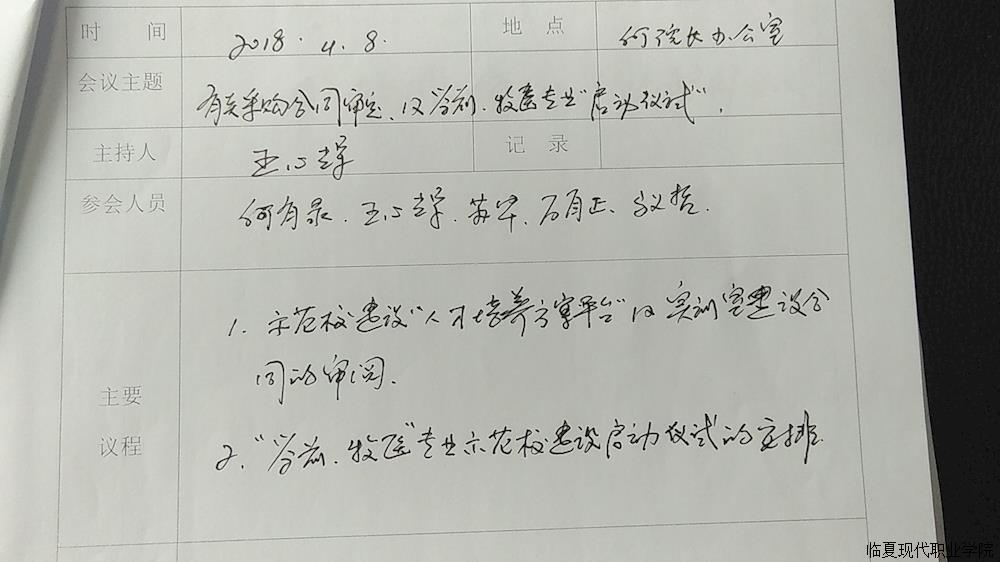 时 间 2018.4.8. 地 点 何院长办公室
会议主题 有关采购合同审定、及学前、牧医专业"启动仪式".
主持人 王心学 记 录
参会人员 何有录、王心学、苏华、石自正、
1. 示范校建设"人才培养方案平台"及实训室建设合
同的审阅.
主要
议程
2. "学前、牧医"专业示范校建设启动仪式的安排
临夏现代职业学院